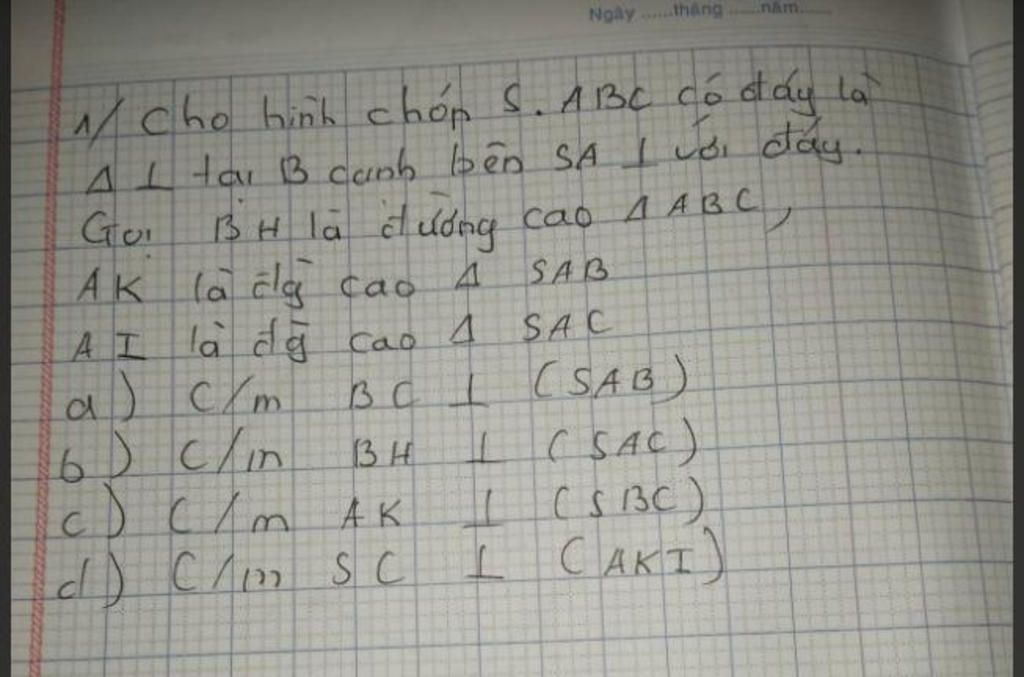 Ngày ......tháng ......năm......
1/ Cho hình chóp S.ABC có đáy là
Δ ⊥ tại B cạnh bên SA ⊥ với đáy.
Gọi BH là đường cao Δ ABC,
AK là đg cao Δ SAB
AI là đg cao Δ SAC
a) C/m BC ⊥ (SAB)
b) C/m BH ⊥ (SAC)
c) C/m AK ⊥ (SBC)
d) C/m SC ⊥ (AKI)